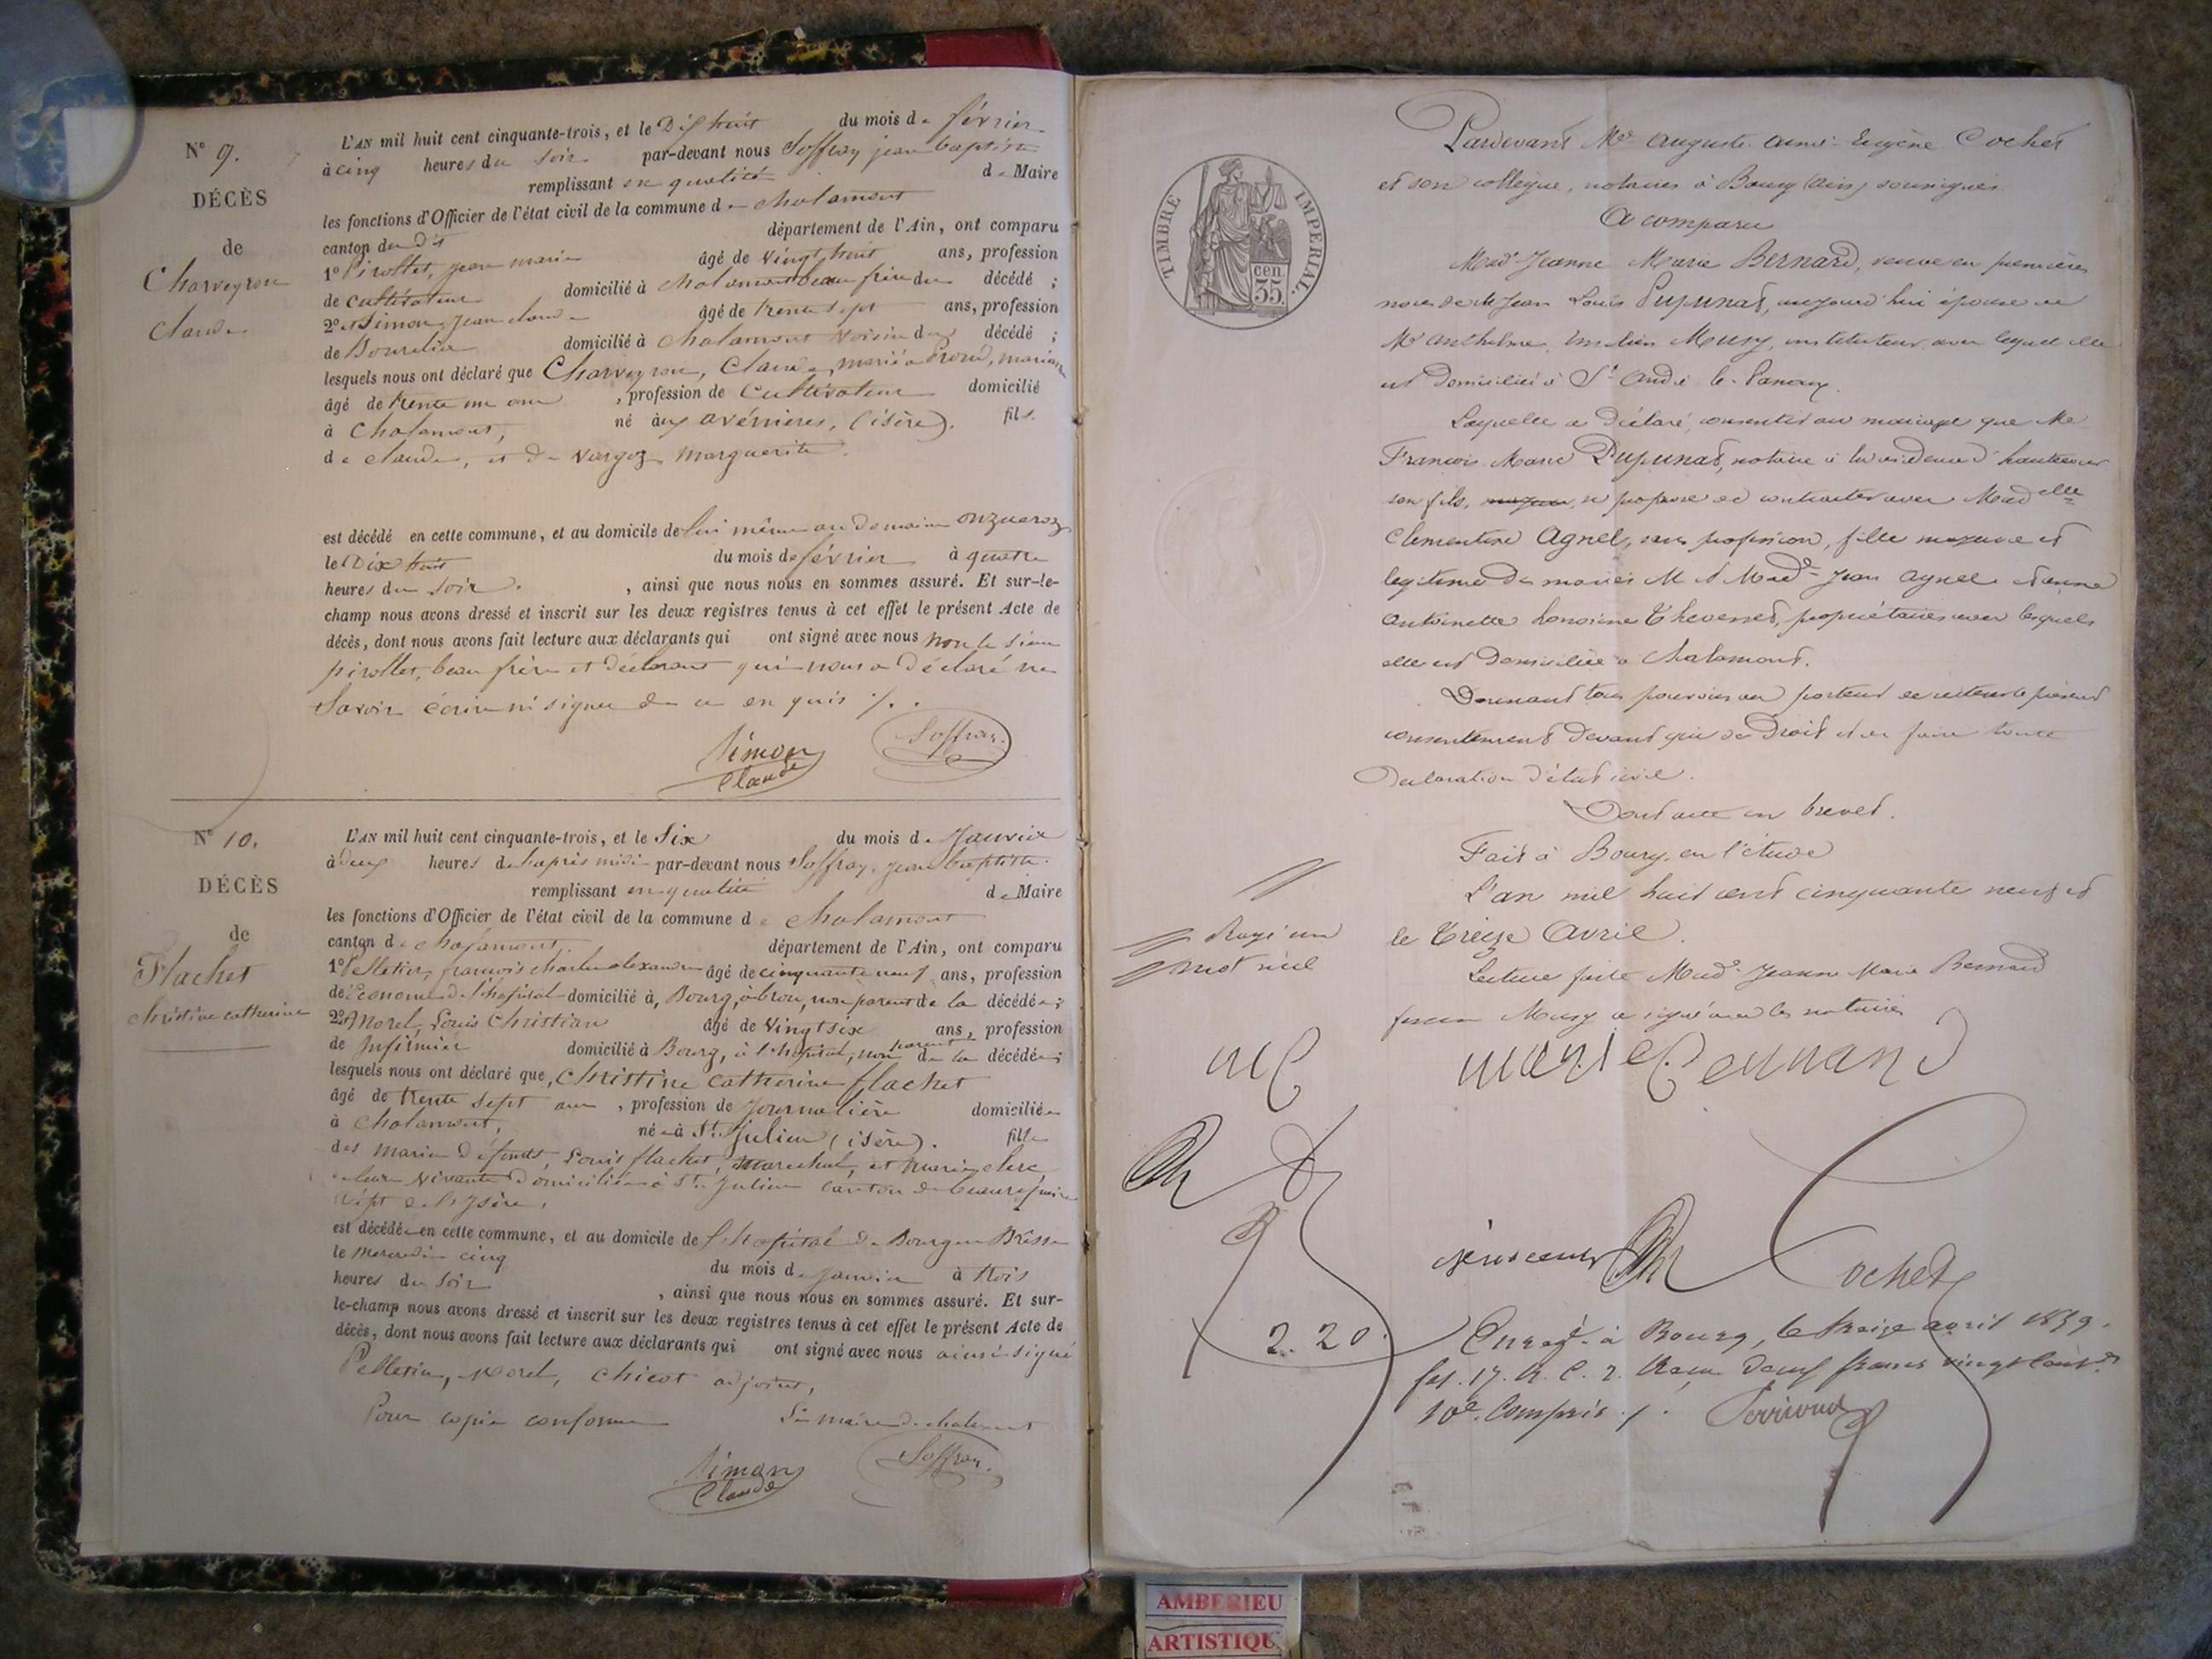 N° 9.
DÉCÈS
de
Charveyron
Claude
L'AN mil huit cent cinquante-trois, et le Dix huit du mois de février
à cinq heures du soir par-devant nous Soffray jean baptiste
remplissant en qualité de Maire
les fonctions d'Officier de l'état civil de la commune de chalamont
canton du dit département de l'Ain, ont comparu
1° Pirollet, jean marie âgé de vingt huit ans, profession
de cultivateur domicilié à chalamont beau frère du décédé ;
2° et Simon, jean claude âgé de trente sept ans, profession
de Bourelier domicilié à chalamont voisin du décédé ;
lesquels nous ont déclaré que Charveyron, Claude, marié a
âgé de trente un ans , profession de Cultivateur domicilié
à Chalamont, né aux avénières, (isère). fils
de claude, et de marguerite.
est décédé en cette commune, et au domicile de lui même au domaine
le Dix huit du mois de février à quatre
heures du soir. , ainsi que nous nous en sommes assuré. Et sur-le-
champ nous avons dressé et inscrit sur les deux registres tenus à cet effet le présent Acte de
décès, dont nous avons fait lecture aux déclarants qui ont signé avec nous non le sieur
pirollet, beau frère et déclarant qui nous a déclaré ne
savoir écrire ni signer de ce enquis ./.
Simon Claude
Soffray
N° 10.
DÉCÈS
de
Flachet
christine catherine
L'AN mil huit cent cinquante-trois, et le Six du mois de Janvier
à deux heures de l'après midi par-devant nous Soffray, jean baptiste
remplissant en qualité de Maire
les fonctions d'Officier de l'état civil de la commune de chalamont
canton de chalamont. département de l'Ain, ont comparu
1° Pelletier, françois charles alexandre âgé de cinquante neuf ans, profession
de Econome de l'hôpital domicilié à, Bourg, à brou, non parent de la décédée ;
2° et Morel, Louis Christian âgé de vingt six ans, profession
de Infirmier domicilié à Bourg, à l'hôpital, non parent de la décédée ;
lesquels nous ont déclaré que, Christine Catherine flachet
âgé de trente sept ans , profession de Journalière domiciliée
à chalamont, née à St. julien (isère). fille
des mariés défunts, Louis flachet, marechal, et marie clerc
de leur vivants domiciliés à St. Julien canton de beaurepaire
dépt de l'ysère,
est décédée en cette commune, et au domicile de l'hôpital de Bourg en Bresse
le mercredi cinq du mois de janvier à trois
heures du soir , ainsi que nous nous en sommes assuré. Et sur-
le-champ nous avons dressé et inscrit sur les deux registres tenus à cet effet le présent Acte de
décès, dont nous avons fait lecture aux déclarants qui ont signé avec nous ainsi signé
Pelletier, Morel, Chicot adjoint,
Pour copie conforme Le maire de chalamont
Simon Claude
Soffray
TIMBRE IMPERIAL.
35 cen
Pardevant Me Auguste Aimé Eugène Cochet
et son collègue, notaires à Bourg (ain) soussignés
A comparu
Made Jeanne Marie Bernard, veuve en premières
noces de M. Jean Louis Pupunat, aujourd'hui épouse de
Mr Anthelme Musy, instituteur avec lequel elle
est domiciliée à St André le Panoux.
Laquelle a déclaré, consentir au mariage que Me
François Marie Pupunat, notaire à la résidence d'hauteville
son fils, se propose de contracter avec Madelle
Clementine Agnel, sans profession, fille majeure et
legitime des mariés M. et Made Jean Agnel et anne
Antoinette honorine Thevenet, propriétaires avec lesquels
elle est domiciliée à Chalamont.
Donnant tous pouvoirs au porteur de réiterer le présent
consentement devant qui de Droit et en faire toute
Declaration d'état civil.
Dont acte en brevet.
Fait à Bourg, en l'étude
L'an mil huit cent cinquante neuf et
le treize Avril.
Lecture faite Made Jeanne Marie Bernard
femme Musy a signé avec les notaires
Rayé un
mot nul
marie Bernard
Cochet
2.20
Enregé. à Bourg, le treize avril 1859.
fol. 17. R. C. 2. Reçu deux francs vingt cent.
10e. compris ./.
AMBERIEU
ARTISTIQU